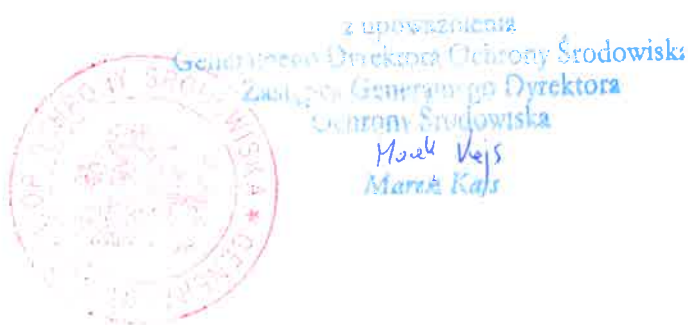 z upoważnienia
Generalnego Dyrektora Ochrony Środowiska
Zastępca Generalnego Dyrektora
Ochrony Środowiska
Marek Kajs
Marek Kajs
ŚRODOWISKA * GENERAL